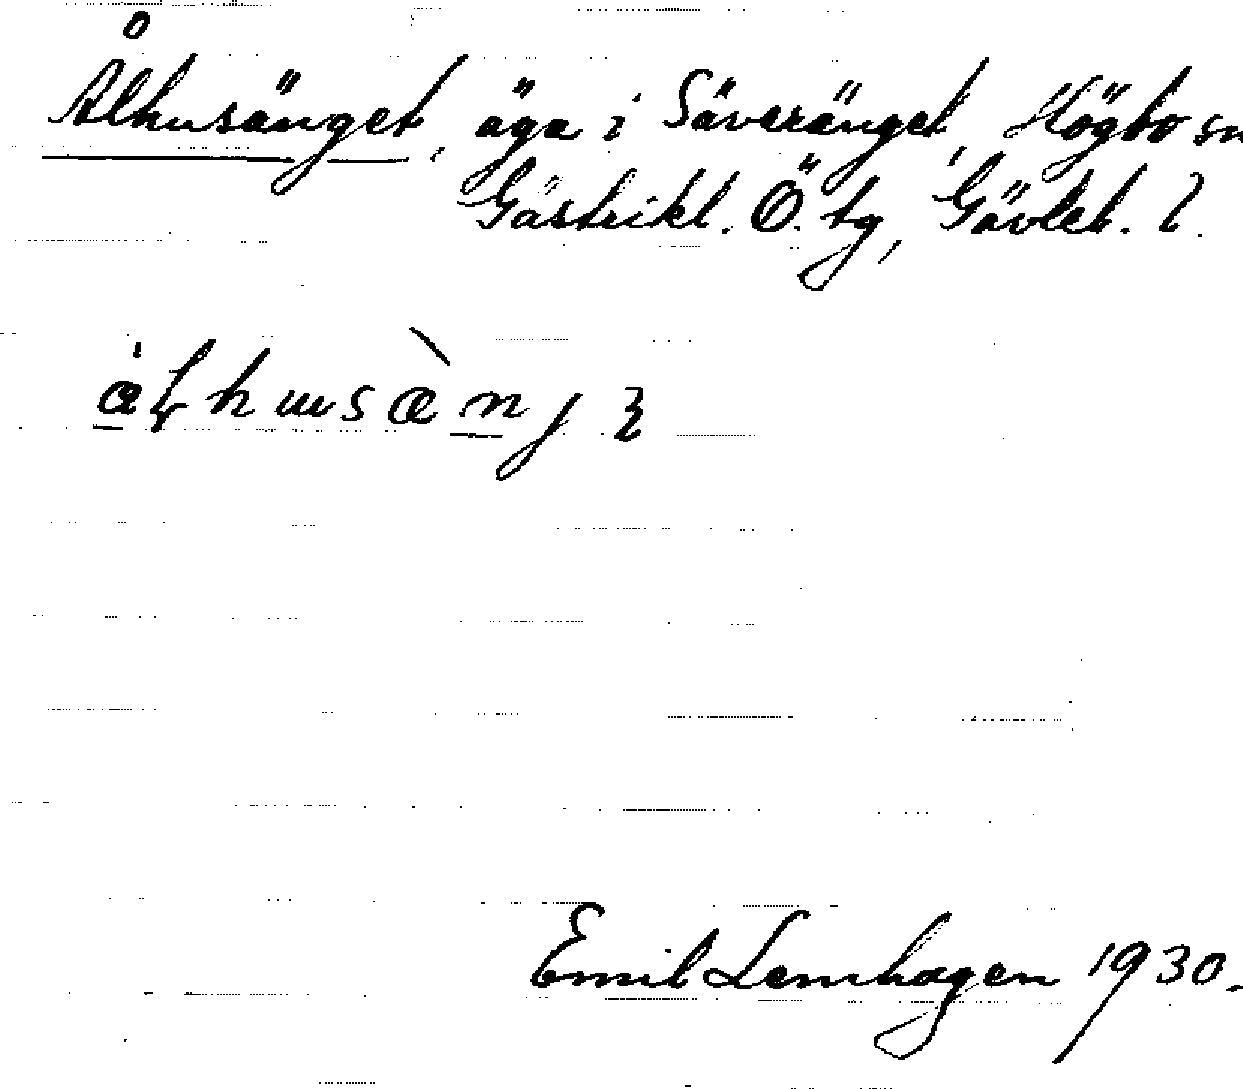 Ålhusänget, äga i Säveränget, Högbo sn
Gästrikl. Ö. tg, Gävleb. l.
Emil Lenhagen 1930.